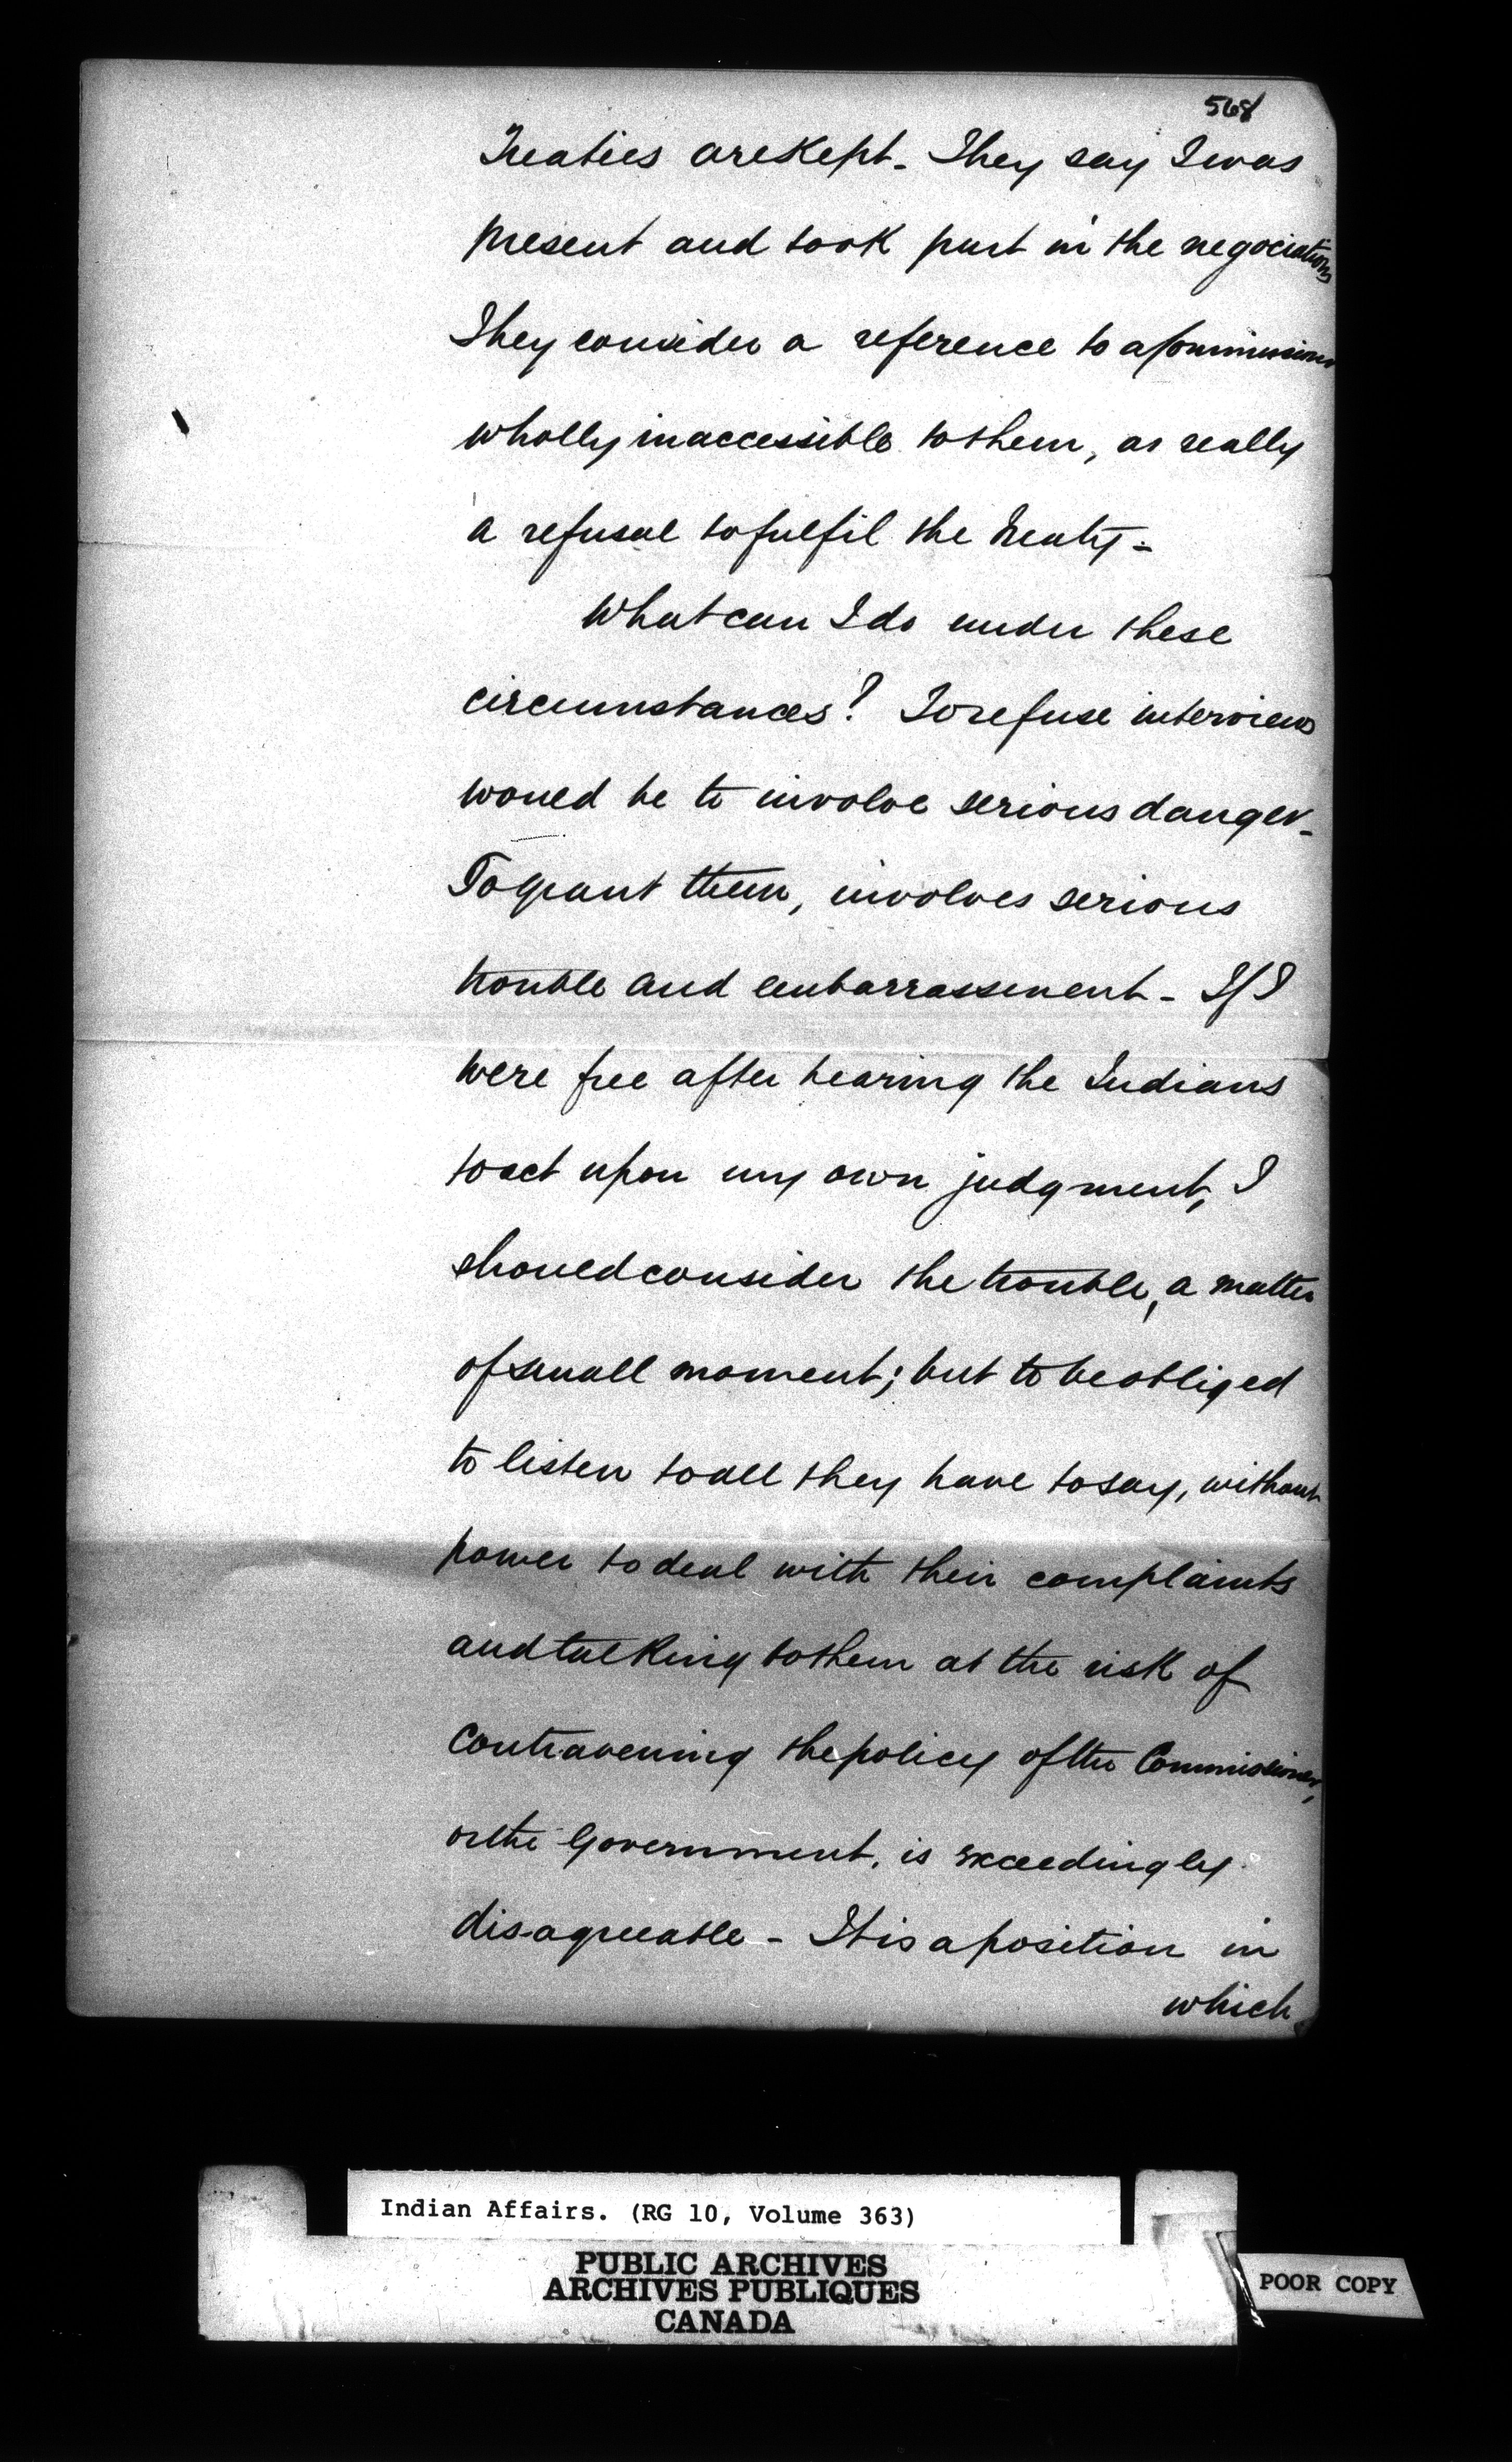 568
Treaties are Kept - They say I was
present and took part in the negociations
They consider a reference to a Commissioner
wholly inaccessible to them, as really
a refusal to fulfil the Treaty -
What can I do under these
circumstances? To refuse interviews
would be to involve serious danger -
To grant them, involves serious
trouble and embarrassment - If I
were free after hearing the Indians
to act upon my own judgment, I
should consider the trouble, a matter
of small moment; but to be obliged
to listen to all they have to say, without
power to deal with their complaints
and talking to them at the risk of
contravening the policy of the Commissioner,
or the Government, is exceedingly
disagreeable - It is a position in
which
Indian Affairs. (RG 10, Volume 363)
PUBLIC ARCHIVES
ARCHIVES PUBLIQUES
CANADA
POOR COPY